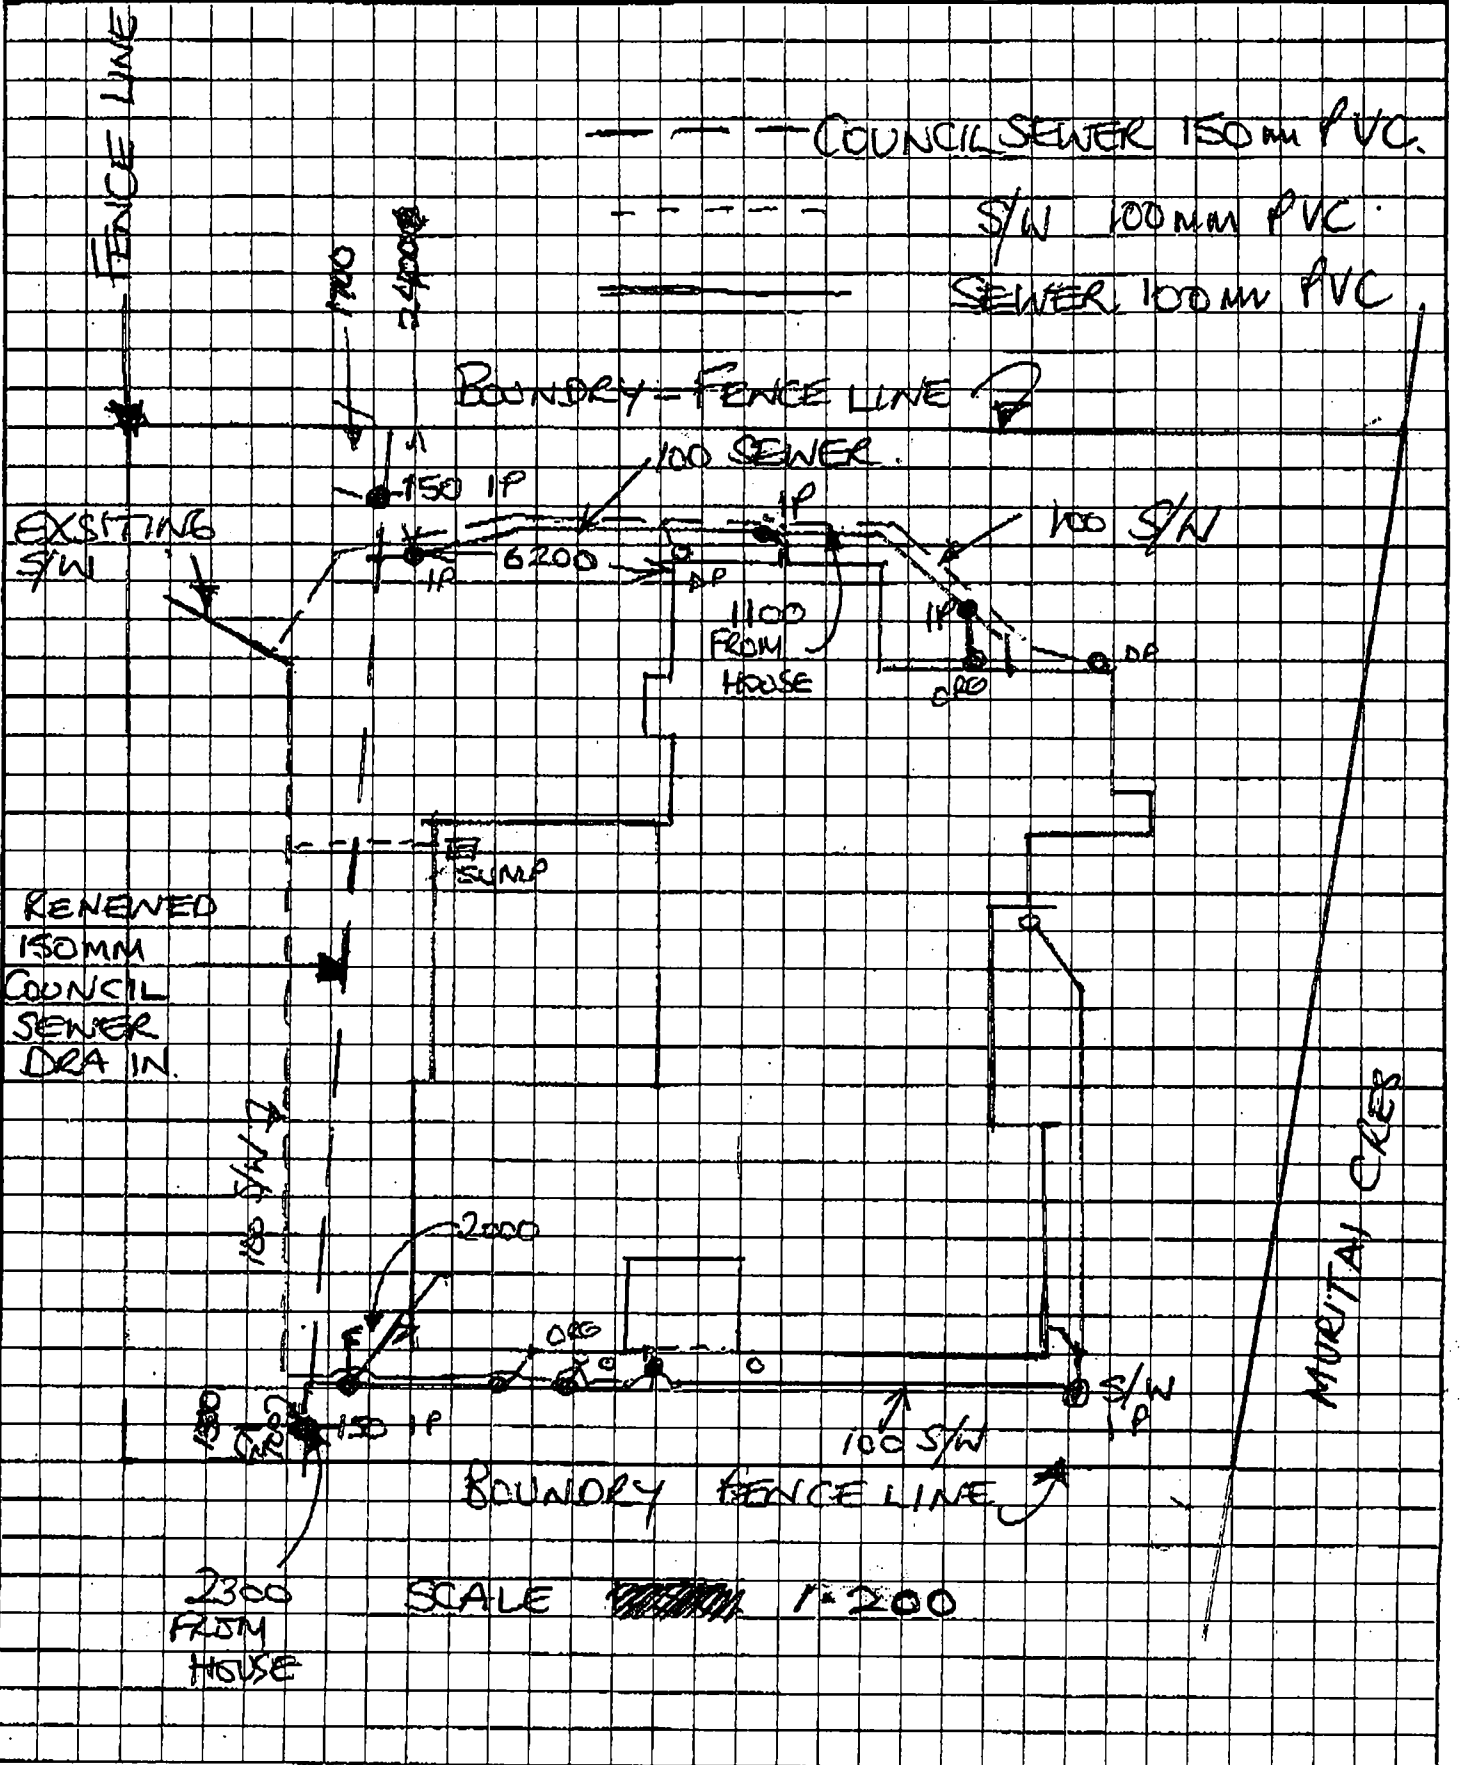 FENCE LINE
COUNCIL SEWER 150mm PVC.
S/W 100MM PVC
SEWER 100MM PVC
1700
2400
BOUNDRY - FENCE LINE
100 SEWER.
150 IP
IP
100 S/W
EXSITTING
S/W
6200
IP
DP
1100
FROM
HOUSE
IP
DP
ORG
SUMP
RENEWED
150MM
COUNCIL
SEWER
DRAIN.
100 S/W
2000
ORG
MURITAI CRES
150 IP
S/W
IP
100 S/W
BOUNDRY FENCE LINE
2300
FROM
HOUSE
SCALE 1:200